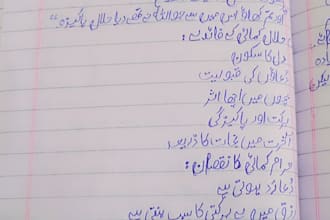 "اور تم کھاؤ اس میں سے جو اللہ نے تمھیں دیا حلال پاکیزہ"
حلال کمائی کے فائدے:
دل کا سکون
دعاؤں کی قبولیت
بچوں میں اچھا اثر
برکت اور پاکیزگی
آخرت میں نجات کا ذریعہ
حرام کمائی کا نقصان:
دُعا رد ہوتی ہے
رزق میں بے برکتی کا سبب بنتی ہے